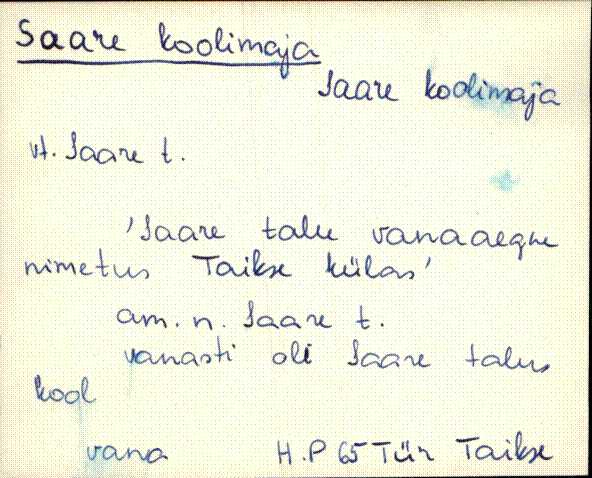 Saare koolimaja
Saare koolimaja
vt. Saare t.
'Saare talu vanaaegne
nimetus Taikse külas'
am. n. Saare t.
vanasti oli Saare talus
kool
vana H.P 65 Tür Taikse